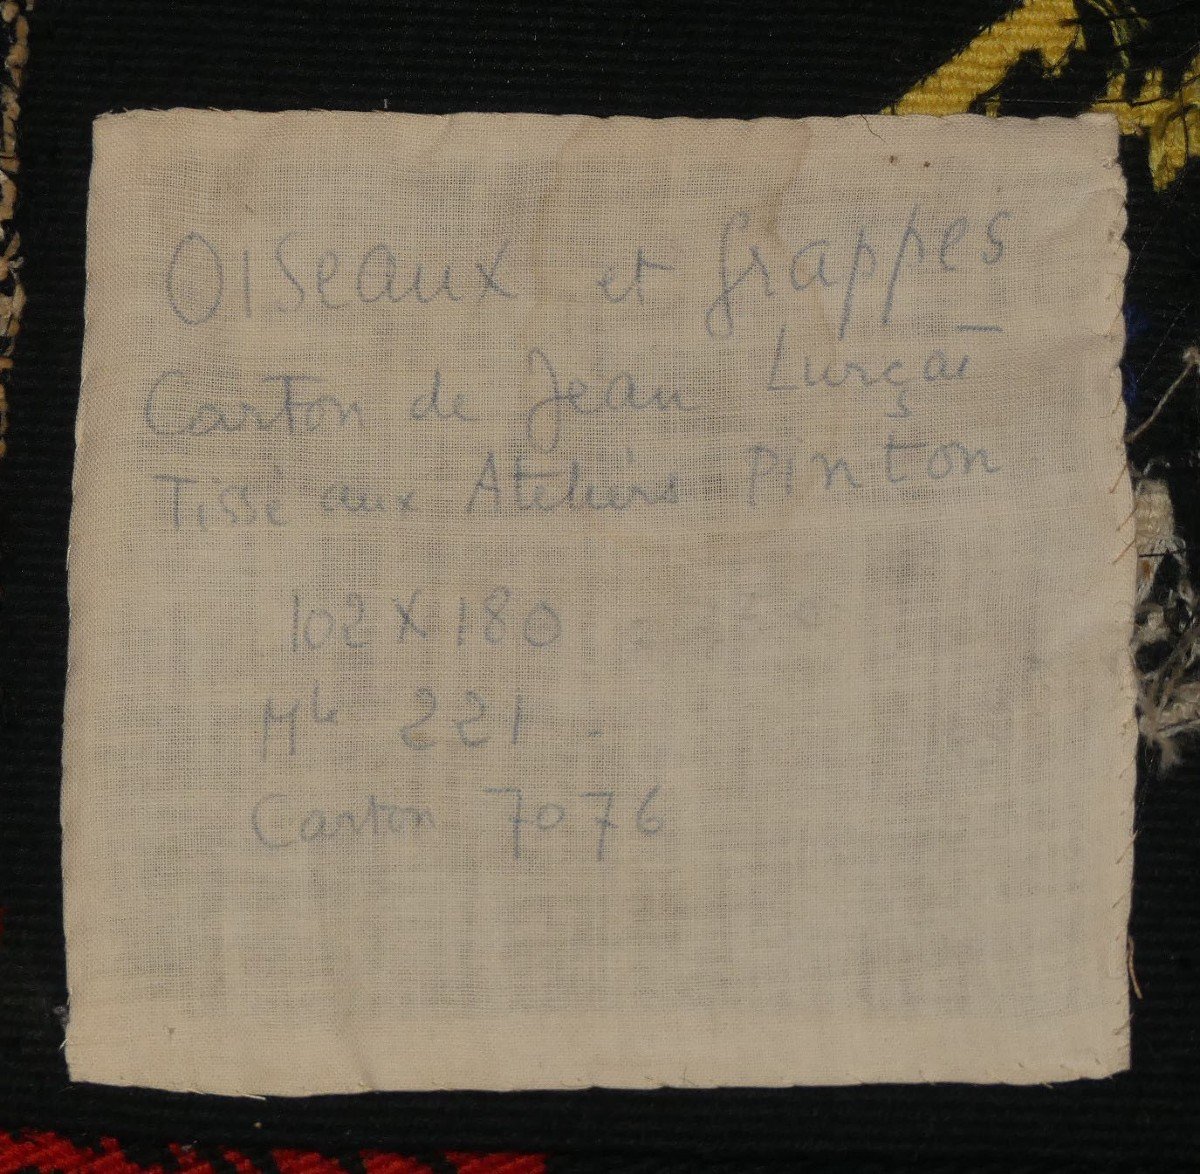 Oiseaux et grappes
Carton de Jean Lurçat
Tissé aux Ateliers Pinton
102 X 180
Mle 221.
Carton 7076